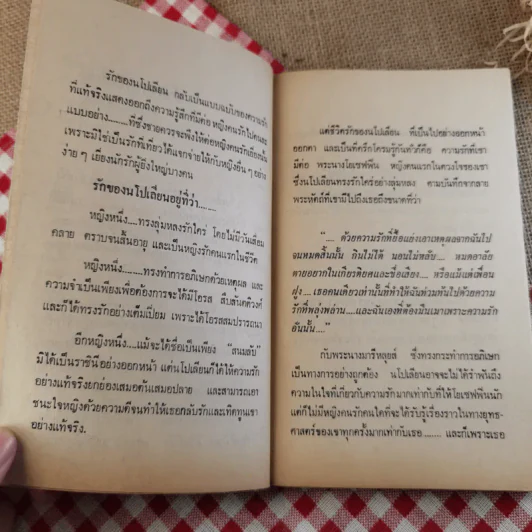 รักของนโปเลียน กลับเป็นแบบฉบับของความรัก
ที่แท้จริงแสดงออกถึงความรู้สึกที่มีต่อ หญิงคนรักไปคนละ
แบบอย่าง........ที่ซึ่งชายควรจะพึงให้ต่อหญิงคนรักเยี่ยงนั้น
เพราะมิใช่เป็นรักที่เที่ยวได้แจกจ่ายให้กับหญิงอื่น ๆ อย่าง
ง่าย ๆ เยี่ยงนักรักผู้ยิ่งใหญ่บางคน
รักของนโปเลียนอยู่ที่ว่า........
หญิงหนึ่ง.... ทรงลุ่มหลงรักใคร่ โดยไม่มีวันเสื่อม
คลาย ตราบจนสิ้นอายุ และเป็นหญิงรักคนแรกในชีวิต
หญิงหนึ่ง........ทรงทำการอภิเษกด้วยเหตุผล และ
ความจำเป็นเพียงเพื่อต้องการจะได้มีโอรส สืบสันตติวงศ์
และก็ได้ทรงรักอย่างเต็มเปี่ยม เพราะได้โอรสสมปรารถนา
อีกหญิงหนึ่ง.....แม้จะได้ชื่อเป็นเพียง "สนมลับ"
มิได้เป็นราชินีอย่างออกหน้า แต่นโปเลียนก็ได้ให้ความรัก
อย่างแท้จริงยกย่องเสมอต้นเสมอปลาย และสามารถเอา
ชนะใจหญิงด้วยความดีจนทำให้เธอกลับรักและเทิดทูนเขา
อย่างแท้จริง.
แต่ชีวิตรักของนโปเลียน ที่เป็นไปอย่างออกหน้า
ออกตา และเป็นที่ครึกโครมรู้กันทั่วก็คือ ความรักที่เขา
มีต่อ พระนางโยเซฟฟิน หญิงคนแรกในดวงใจของเขา
ซึ่งนโปเลียนทรงรักใคร่อย่างลุ่มหลง ตามบันทึกจากลาย
พระหัตถ์ที่เขามีไปถึงเธอถึงขนาดที่ว่า
".... ด้วยความรักที่ยื้อแย่งเอาเหตุผลจากฉันไป
จนหมดสิ้นนั้น กินไม่ได้ นอนไม่หลับ... หมดอาลัย
ตายอยากในเกียรติยศและชื่อเสียง... หรือแม้แต่เพื่อน
ฝูง ... เธอคนเดียวเท่านั้นที่ทำให้ฉันท่วมท้นไปด้วยความ
รักที่พลุ่งพล่าน....และฉันเองที่ต้องมึนเมาเพราะความรัก
อันนั้น...."
กับพระนางมารีหลุยส์ ซึ่งทรงกระทำการอภิเษก
เป็นทางการอย่างถูกต้อง นโปเลียนอาจจะไม่ได้รำพันถึง
ความในใจที่เกี่ยวกับความรักมากเท่ากับที่ให้โยเซฟฟินนัก
แต่ก็ไม่มีหญิงคนรักคนใดที่จะได้รับรู้เรื่องราวในทางยุทธ-
ศาสตร์ของเขาทุกครั้งมากเท่ากับเธอ........ และก็เพราะเธอ